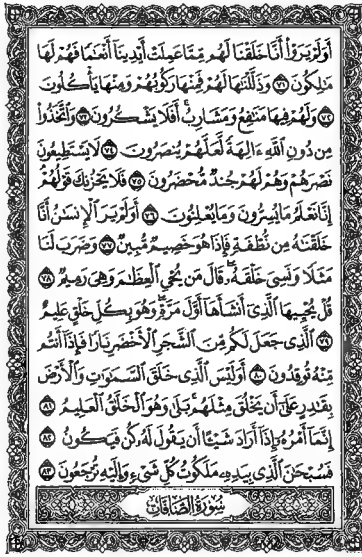 أَوَلَمْ يَرَوْا۟ أَنَّا خَلَقْنَا لَهُم مِّمَّا عَمِلَتْ أَيْدِينَآ أَنْعَٰمًا فَهُمْ لَهَا
مَٰلِكُونَ ٧١ وَذَلَّلْنَٰهَا لَهُمْ فَمِنْهَا رَكُوبُهُمْ وَمِنْهَا يَأْكُلُونَ
٧٢ وَلَهُمْ فِيهَا مَنَٰفِعُ وَمَشَارِبُ أَفَلَا يَشْكُرُونَ ٧٣ وَٱتَّخَذُوا۟
مِن دُونِ ٱللَّهِ ءَالِهَةً لَّعَلَّهُمْ يُنصَرُونَ ٧٤ لَا يَسْتَطِيعُونَ
نَصْرَهُمْ وَهُمْ لَهُمْ جُندٌ مُّحْضَرُونَ ٧٥ فَلَا يَحْزُنكَ قَوْلُهُمْ
إِنَّا نَعْلَمُ مَا يُسِرُّونَ وَمَا يُعْلِنُونَ ٧٦ أَوَلَمْ يَرَ ٱلْإِنسَٰنُ أَنَّا
خَلَقْنَٰهُ مِن نُّطْفَةٍ فَإِذَا هُوَ خَصِيمٌ مُّبِينٌ ٧٧ وَضَرَبَ لَنَا
مَثَلًا وَنَسِىَ خَلْقَهُۥ قَالَ مَن يُحْىِ ٱلْعِظَٰمَ وَهِىَ رَمِيمٌ ٧٨
قُلْ يُحْيِيهَا ٱلَّذِىٓ أَنشَأَهَآ أَوَّلَ مَرَّةٍ وَهُوَ بِكُلِّ خَلْقٍ عَلِيمٌ
٧٩ ٱلَّذِى جَعَلَ لَكُم مِّنَ ٱلشَّجَرِ ٱلْأَخْضَرِ نَارًا فَإِذَآ أَنتُم
مِّنْهُ تُوقِدُونَ ٨٠ أَوَلَيْسَ ٱلَّذِى خَلَقَ ٱلسَّمَٰوَٰتِ وَٱلْأَرْضَ
بِقَٰدِرٍ عَلَىٰٓ أَن يَخْلُقَ مِثْلَهُم بَلَىٰ وَهُوَ ٱلْخَلَّٰقُ ٱلْعَلِيمُ ٨١
إِنَّمَآ أَمْرُهُۥٓ إِذَآ أَرَادَ شَيْـًٔا أَن يَقُولَ لَهُۥ كُن فَيَكُونُ ٨٢
فَسُبْحَٰنَ ٱلَّذِى بِيَدِهِۦ مَلَكُوتُ كُلِّ شَىْءٍ وَإِلَيْهِ تُرْجَعُونَ ٨٣
سُورَةُ الصَّافَّاتِ